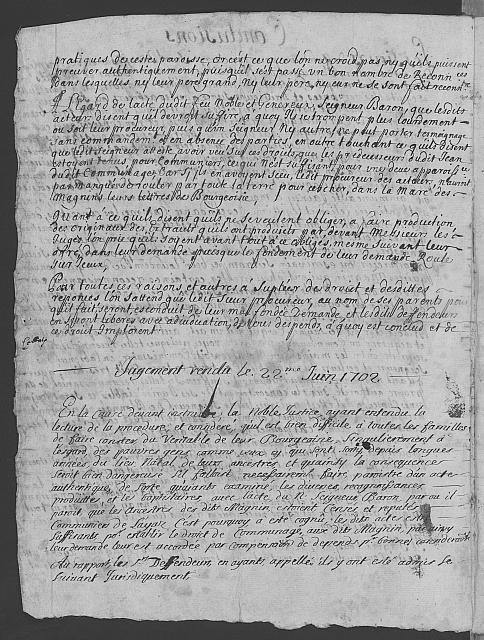 pratiques de cestes paroisse, or c'est ce que l'on ne croid pas ny qu'ils puissent
prouver authentiquement, puisqu'il s'est passé un bon nombre de Reconn.ces
Dans lesquelles ny leur pere grand, ny leur pere, ny eux ne se sont fait reconoitre
A L'Egard de l'acte dudit feu Noble et Genereux, Seigneur Baron, que lesdits
acteurs disent qui devroit suffire, a quoy ils se trompent plus lourdement
ou soit leur procureur, puis qu'un Seigneur Ny autre, ne peut porter temoignage
Sans commandem.t et en absence des parties, en outre touchant ce qu'ils disent
que ledit seigneur a dit avoir veu ses droits que les predecesseurs dudit Jean
estoyent tenus, pour Communiers, ce qui n'est suffisant pour
dudit Communage, Car s'ils en avoyent seu, ledit procureur des acteur, n'auroit
pas manqué de rouler par tout la terre pour chercher, dans la Marc des
Magnins leurs lettres de Bourgeoisie,
Quant à ce qu'ils disent qu'ils ne se veuilent obliger, a faire production
des originaux des extraits qu'ils ont produits par devant Messieurs les
Juges, l'on prie qu'ils soyent avant tout à ce obligés, mesme suivant leur
offre, dans leur demande puisque le fondement de leur demande Roule
sur Iceux,
Pour toutes ces raisons, et autres a suplier des droict et desdittes
reponses l'on s'attend que ledit Sieur procureur, au nom de ses parents pour
qui fait, seront, esconduit de leur mal fondée Demande, et lesdits deffendeurs
en seront liberés avec adjudication, de tous despends, a quoy est conclud et de
ce droict Implorent.
Jugement rendu le 22.me Juin 1702
En la Cause devant instruite, la Noble Justice, ayant entendu la
lecture de la procedure, et consideré, qu'il est bien difficile à toutes les familles
de faire conster du Veritable de leur Bourgeoisie, Singulierement à
l'esgard des pauvres gens comme ceux cy, qui sont sorty, depuis longues
années du lieu Natal de leurs ancestres, et quainsy la consequence
seroit bien dangereuse, s'il falloit necessairement faire paroistre d'un acte
authentique, de sorte qu'ayant examiné, les diverses recognoissances
produittes, et les capitulaires, avec l'acte du N. Seigneur Baron, par ou il
paroit, que les Ancestres des dits Magnin, estoient Censés et reputés
Communiers de C'est pourquoy à esté cognu, le dits actes estre
suffisants p.r establir le droit de Communage, aux dits Magnin, par ainsy
leur demande leur est accordée par compensation de depends p.r bonnes considerations
Au rapport, les S.rs Deffendeurs en ayants appellé, ils y ont esté admis se
suivant Juridiquement